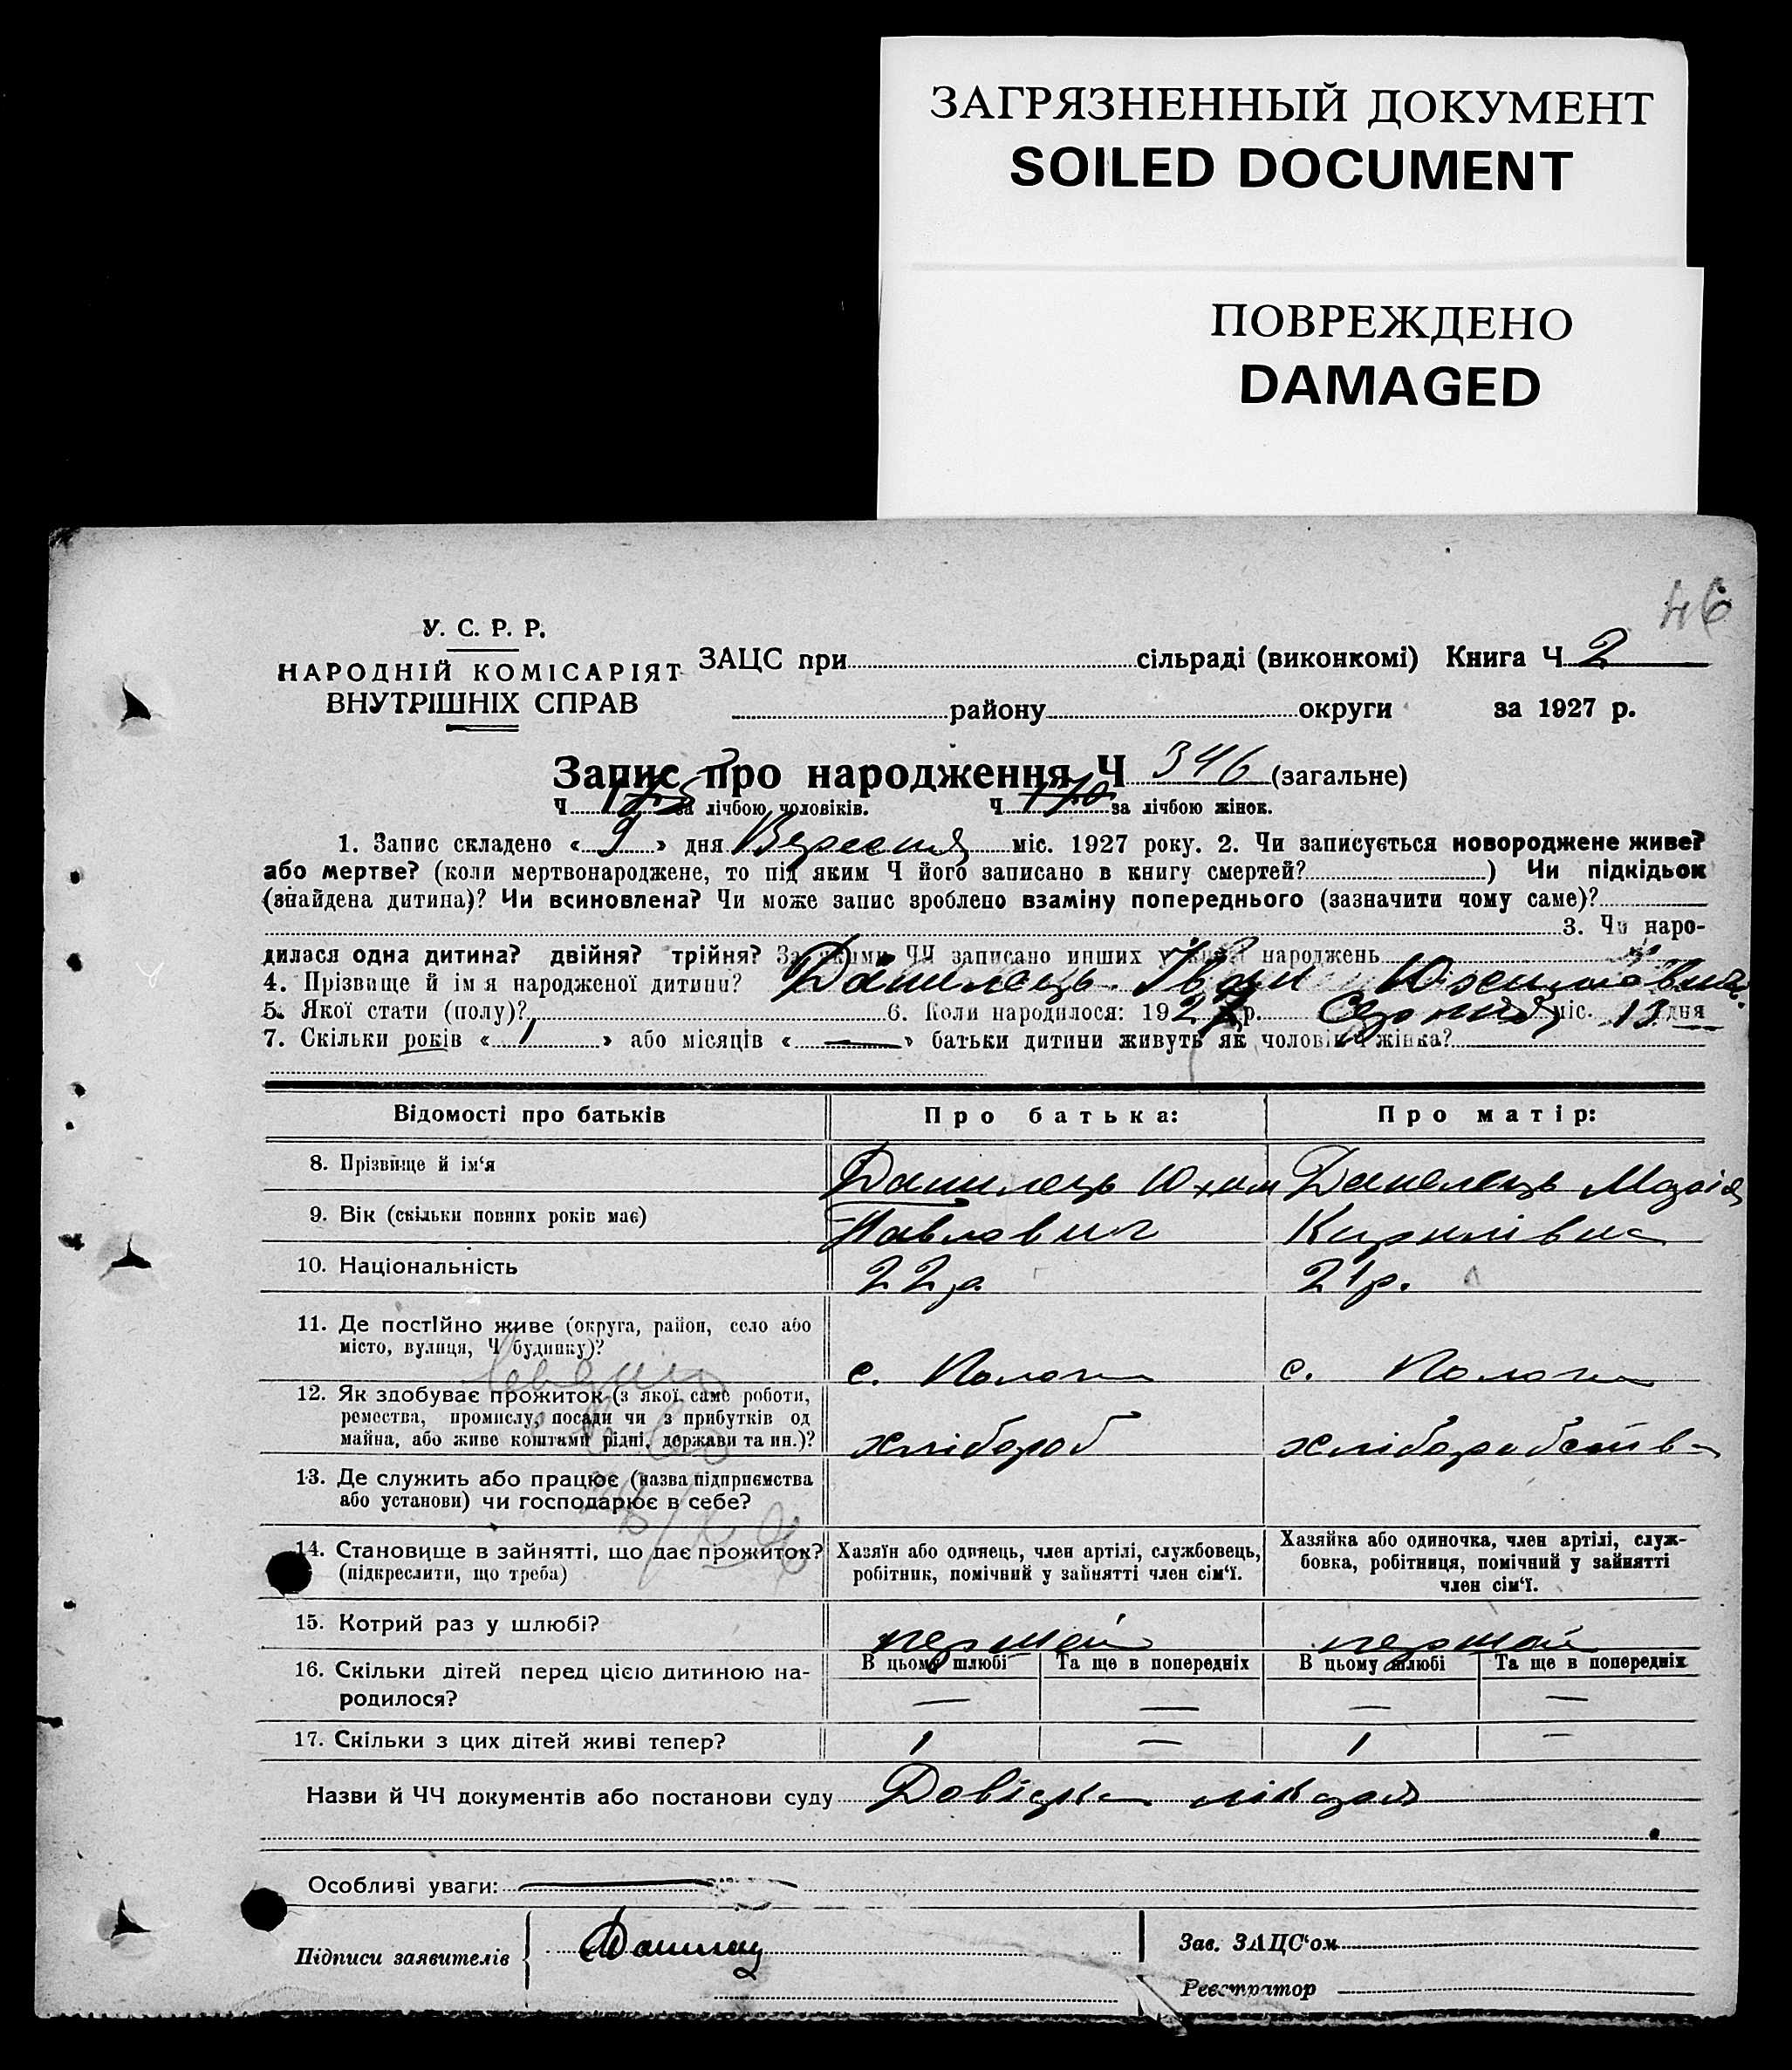 ЗАГРЯЗНЕННЫЙ ДОКУМЕНТ
SOILED DOCUMENT
ПОВРЕЖДЕНО
DAMAGED
46
У. С. Р. Р.
НАРОДНІЙ КОМІСАРІЯТ
ВНУТРІШНІХ СПРАВ
ЗАЦС при сільраді (виконкомі) Книга Ч 2
району округи за 1927 р.
Запис про народження Ч 346 (загальне)
Ч за лічбою чоловіків. Ч 170 за лічбою жінок.
1. Запис складено « 9 » дня Вересня міс. 1927 року. 2. Чи записується новороджене живе?
або мертве? (коли мертвонароджене, то під яким Ч його записано в книгу смертей? ) Чи підкідьок
(знайдена дитина)? Чи всиновлена? Чи може запис зроблено взаміну попереднього (зазначити чому саме)?
3. Чи наро-
дилася одна дитина? двійня? трійня? За якими ЧЧ записано инших у народжень
4. Прізвище й ім'я народженої дитини? Данилець Іван Юхимович
5. Якої стати (полу)? 6. Коли народилося: 1927 р. Серпня міс. 13 дня
7. Скільки років « 1 » або місяців « — » батьки дитини живуть як чоловік і жінка?
Відомості про батьків Про батька: Про матір:
8. Прізвище й ім'я Данилець Юхим Данелець Марія
9. Вік (скільки повних років має) Павлович Кирилівна
10. Національність 22 р. 21 р.
11. Де постійно живе (округа, район, село або
місто, вулиця, Ч будинку)?
с. Пологи с. Пологи
12. Як здобуває прожиток (з якої саме роботи,
ремества, промислу, посади чи з прибутків од
майна, або живе коштами рідні, держави та ин.)? хлібороб хліборобство
13. Де служить або працює (назва підприємства
або установи) чи господарює в себе?
14. Становище в зайнятті, що дає прожиток?
(підкреслити, що треба)
Хазяїн або одинець, член артілі, службовець,
робітник, помічний у зайнятті член сім'ї.
Хазяйка або одиночка, член артілі, служ-
бовка, робітниця, помічний у зайнятті
член сім'ї.
15. Котрий раз у шлюбі? перший перший
16. Скільки дітей перед цією дитиною на-
родилося?
В цьому шлюбі Та ще в попередніх В цьому шлюбі Та ще в попередніх
— — — —
17. Скільки з цих дітей живі тепер? 1 — 1 —
Назви й ЧЧ документів або постанови суду Довідка лікаря
Особливі уваги:
Підписи заявителів Данилец
Зав. ЗАЦС'ом
Реєстратор